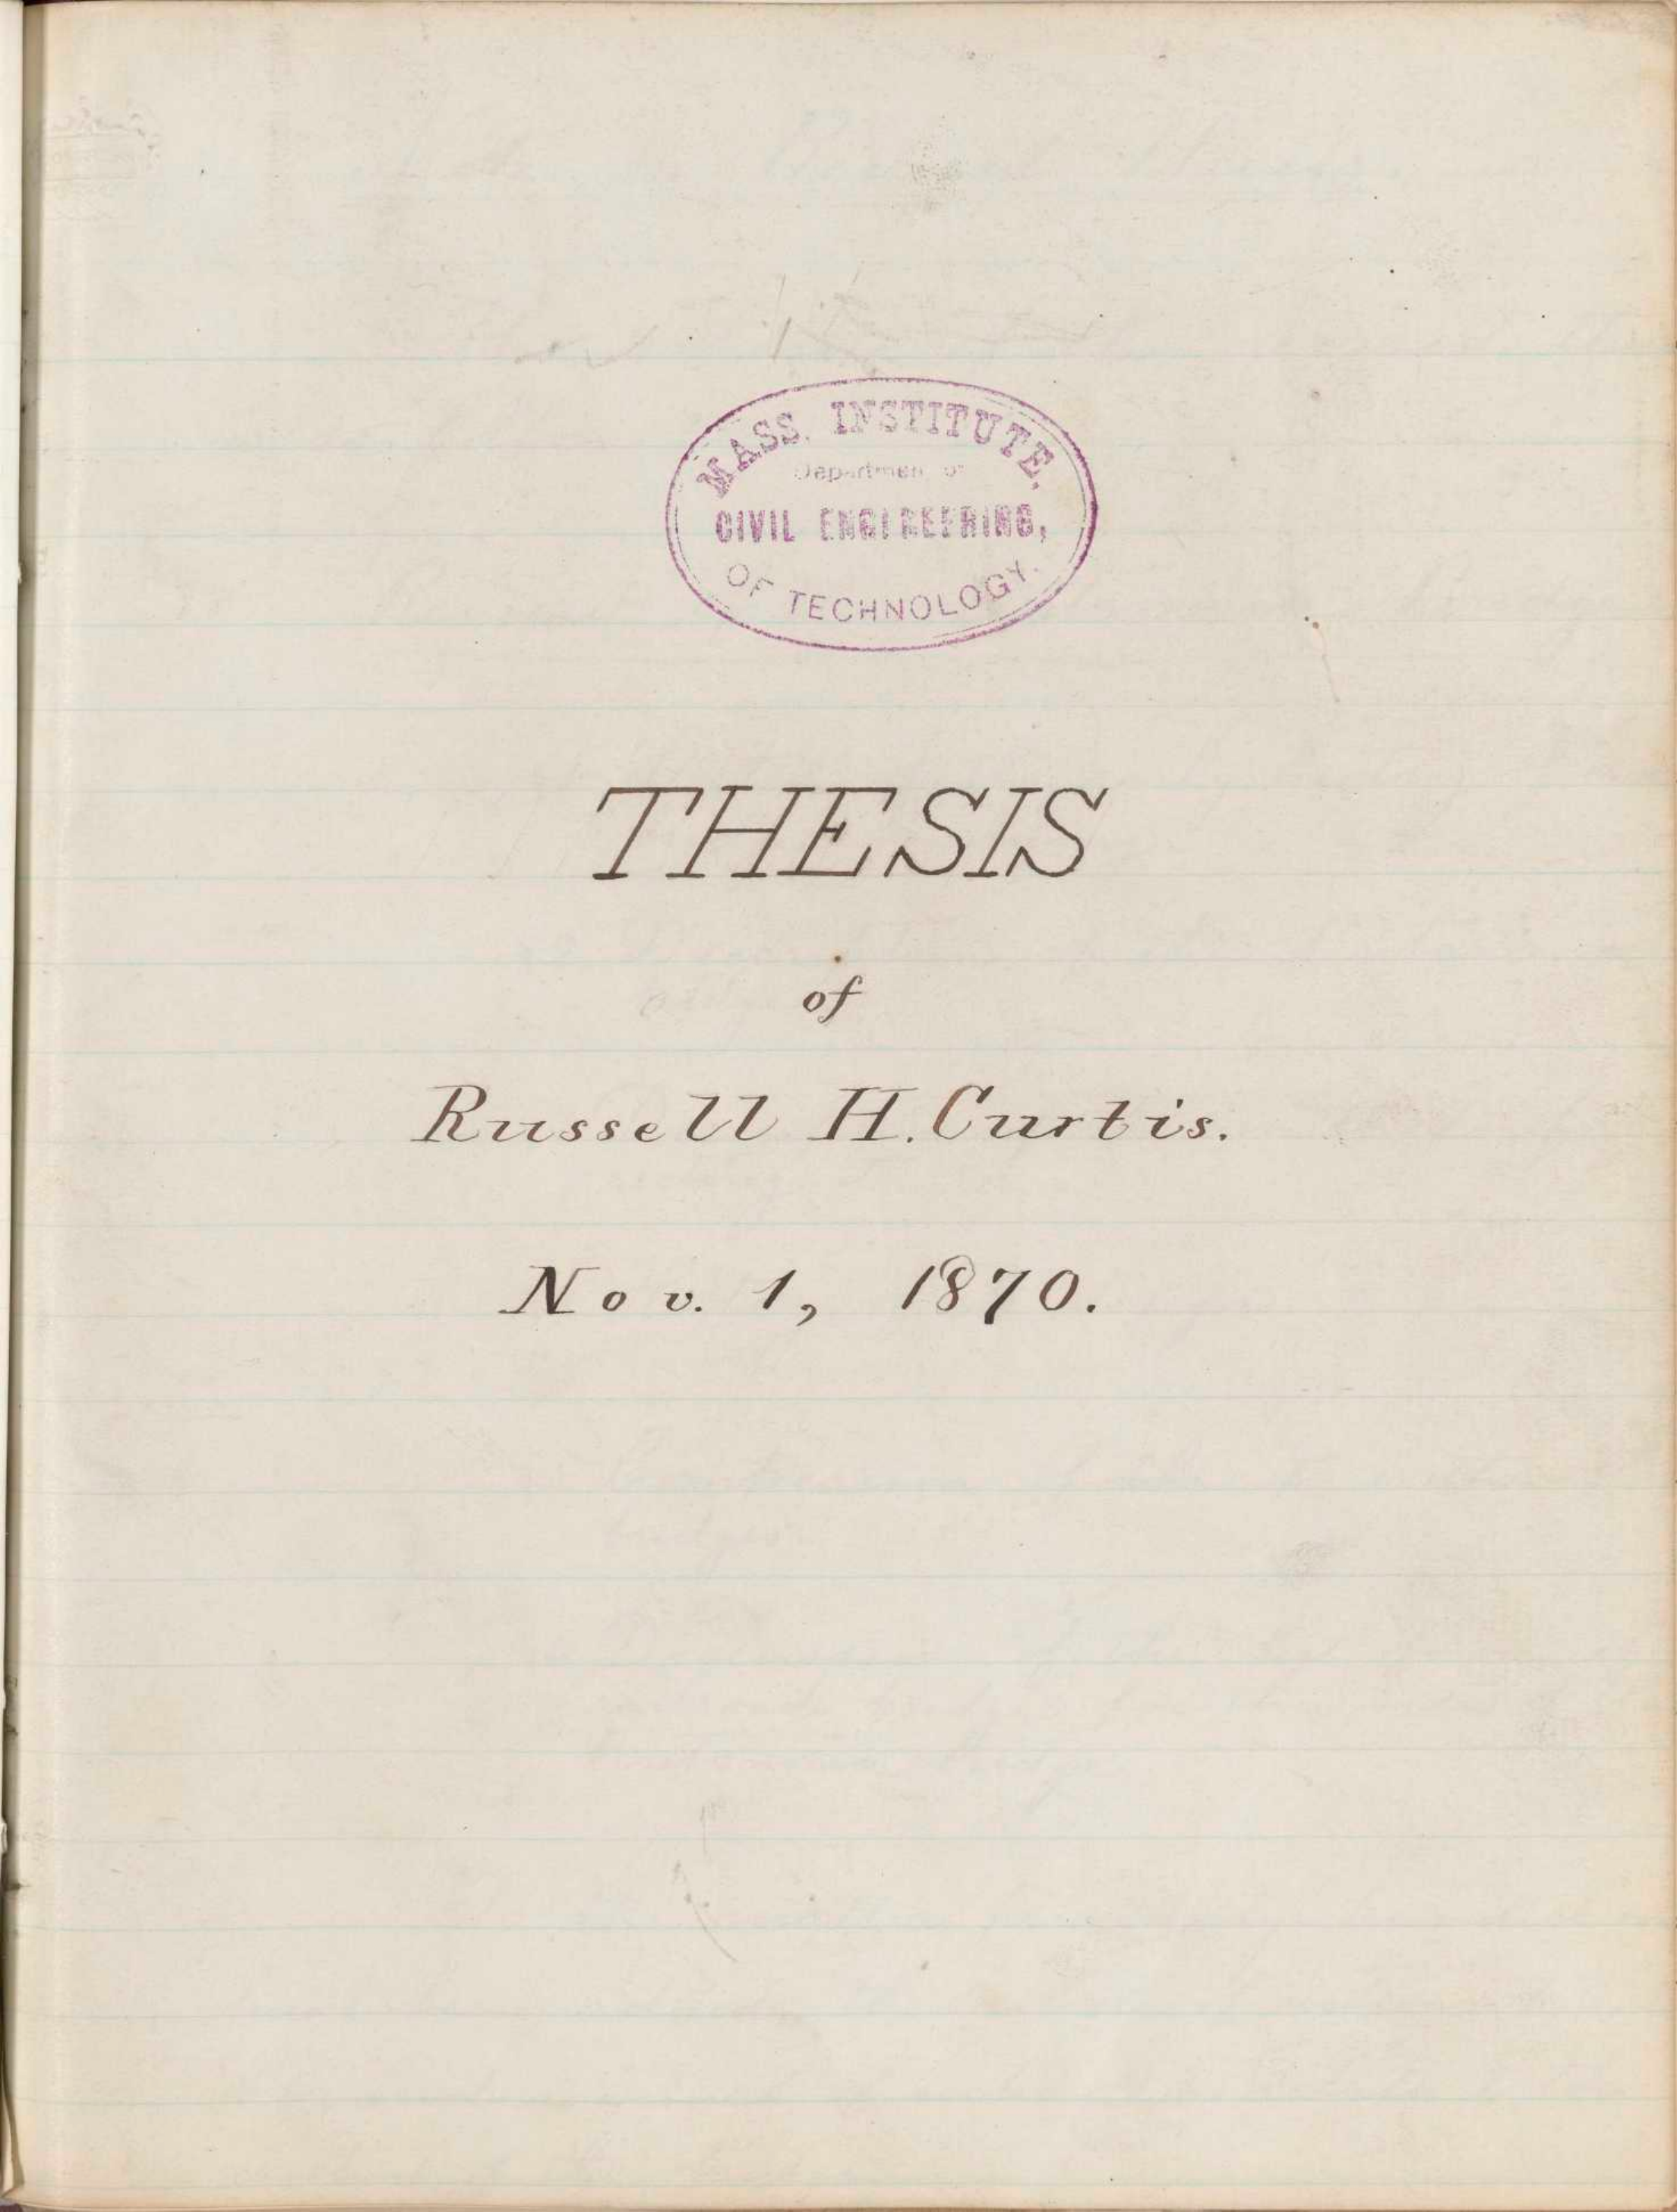 MASS. INSTITUTE.
Department of
CIVIL ENGINEERING,
OF TECHNOLOGY.
THESIS
of
Russell H. Curtis.
Nov. 1, 1870.